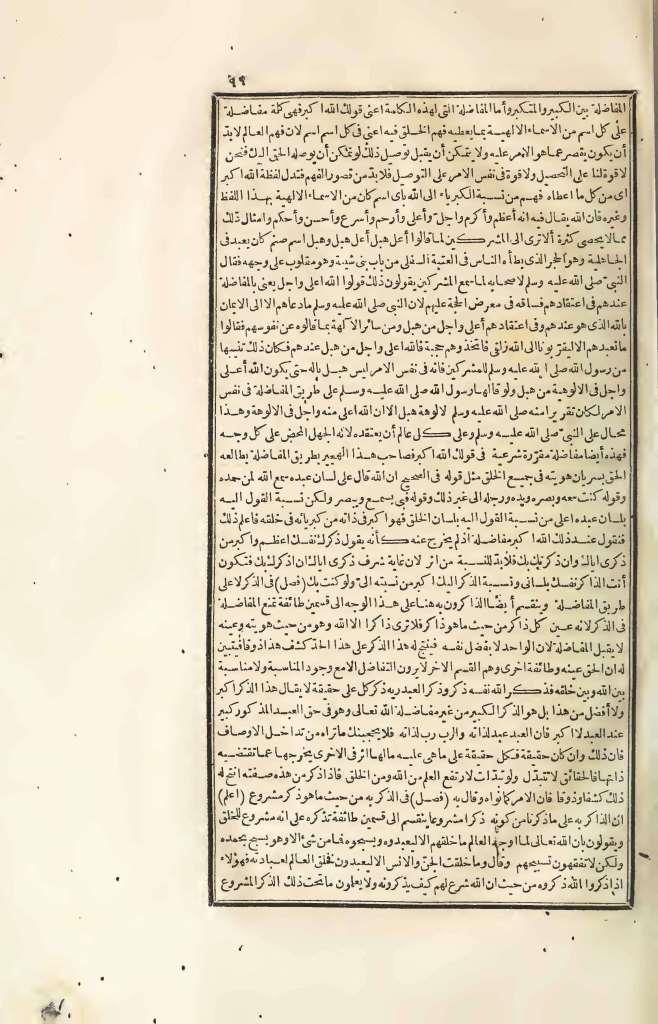 ٩٩
المفاضلة بين الكبير والمتكبر وأما المفاضلة التى لهذه الكلمة اعنى قولك الله اكبر فهى كلة مفاضلة
على كل اسم من الاسماء الالهية بما يعطيه فهم الخلق فيه اعنى فى كل اسم اسم لان فهم العالم لابد
أن يكون يقصر عما هو الامر عليه ولا يتمكن أن يقبل توصيل ذلك لو تمكن أن يوصله الحق اليك فنحن
لا قوة لنا على التحصيل ولا قوة فى نفس الامر على التوصيل فلا بد من قصور الفهم فتدل لفظة الله اكبر
اى من كل ما اعطاه فهم من نسبة الكبرياء الى الله باى اسم كان من الاسماء الالهية بهذا اللفظ
وغيره فان الله يقال فيه انه أعظم وأكرم واجل وأعلى وأرحم وأسرع وأحسن وأحكم وامثال ذلك
مما لا يحصى كثرة ألا ترى الى المشركين لما قالوا أعل هبل أعل هبل وهبل اسم صنم كان يعبد فى
الجاهلية وهو الحجر الذى يطأه الناس فى العتبة السفلى من باب بنى شيبة وهو مقلوب على وجهه فقال
النبى صلى الله عليه وسلم لاصحابه لما سمع المشركين يقولون ذلك قولوا الله اعلى واجل يعنى بالمفاضلة
عندهم فى اعتقادهم فساقه فى معرض الحجة عليهم لان النبى صلى الله عليه وسلم ما دعاهم الا الى الايمان
بالله الذى هو عندهم وفى اعتقادهم أعلى واجل من هبل ومن سائر الآلهة بما قالوه عن نفوسهم فقالوا
ما نعبدهم الا ليقربونا الى الله زلفى فاتخذوهم حجبة فالله اعلى واجل من هبل عندهم فكان ذلك تنبيها
من رسول الله صلى الله عليه وسلم للمشركين فانه فى نفس الامر ليس هبل باله حتى يكون الله أعلى
واجل فى الالوهية من هبل ولو قالها رسول الله صلى الله عليه وسلم على طريق المفاضلة فى نفس
الامر لكان تقريرا منه صلى الله عليه وسلم لالوهة هبل الا ان الله اعلى منه واجل فى الالوهة وهذا
محال على النبى صلى الله عليه وسلم وعلى كل عالم أن يعتقده لانه الجهل المحض على كل وجه
فهذه أيضا مفاضلة مقررة شرعية فى قولك الله اكبر فصاحب هذا الهجير بطريق المفاضلة يطالعه
الحق بسريان هويته فى جميع الخلق مثل قوله فى الصحيح ان الله قال على لسان عبده سمع الله لمن حمده
وقوله كنت سمعه وبصره ويده ورجله الى غير ذلك وقوله فبى يسمع وبى يبصر ولكن نسبة القول اليه
بلسان عبده اعلى من نسبة القول اليه بلسان الخلق فهو اكبر فى ذاته من كبريائه فى خلقه فاعلم ذلك
فنقول عند ذلك الله اكبر مفاضلة اذ لم يخرج عنه كأنه يقول ذكرك نفسك اعظم واكبر من
ذكرى اياك وان ذكرتك بك فلا بد للنسبة من اثر لان غاية شرف ذكرى اياك ان اذكرك بك فتكون
أنت الذاكر نفسك بلسانى ونسبة الذكر اليك اكبر من نسبته الىّ ولو كنت بك (فصل) فى الذكر لا على
طريق المفاضلة وينقسم أيضا الذاكرون به هنا على هذا الوجه الى قسمين طائفة تمنع المفاضلة
فى الذكر لانه عين كل ذاكر من حيث ما هو ذاكر فلا ترى ذاكرا الا الله وهو من حيث هويته وعينه
لا يقبل المفاضلة لان الواحد لا يفضل نفسه فينتج له هذا الذكر على هذا الحد كشف هذا ذوقا فيتبين
له ان الحق عينه وطائفة اخرى وهم القسم الآخر لا يرون التفاضل الا مع وجود المناسبة ولا مناسبة
بين الله وبين خلقه فذكر الله نفسه ذكر وذكر العبد ربه ذكر كل على حقيقة لا يقال هذا الذكر اكبر
ولا أفضل من هذا بل هو الذكر الكبير من غير مفاضلة الله تعالى وهو فى حق العبد المذكور كبير
عند العبد لا اكبر فان العبد عبد لذاته والرب رب لذاته فلا يحجبنك ما تراه من تداخل الاوصاف
فان ذلك وان كان حقيقة فكل حقيقة على ما هى عليه ما لها اثر فى الاخرى يخرجها عما تقتضيه
ذاتها فالحقائق لا تتبدل ولو تبدلت لارتفع العلم من الله ومن الخلق فاذا ذكر من هذه صفته انتج له
ذلك كشفا وذوقا فان الامر كما نواه وقال به (فصل) فى الذكر به من حيث ما هو ذكر مشروع (اعلم)
ان الذاكر به على ما ذكرنا من كونه ذكرا مشروعا ينقسم الى قسمين طائفة تذكره على انه مشروع للخلق
ويقولون بان الله تعالى لما اوجد العالم ما خلقهم الا ليعبدوه ويسبحوه فما من شئ الا وهو يسبح بحمده
ولكن لا تفقهون تسبيحهم وقال وما خلقت الجن والانس الا ليعبدون فخلق العالم لعبادته فهؤلاء
اذا ذكروا الله ذكروه من حيث ان الله شرع لهم كيف يذكرونه ولا يعلمون ما تحت ذلك الذكر المشروع